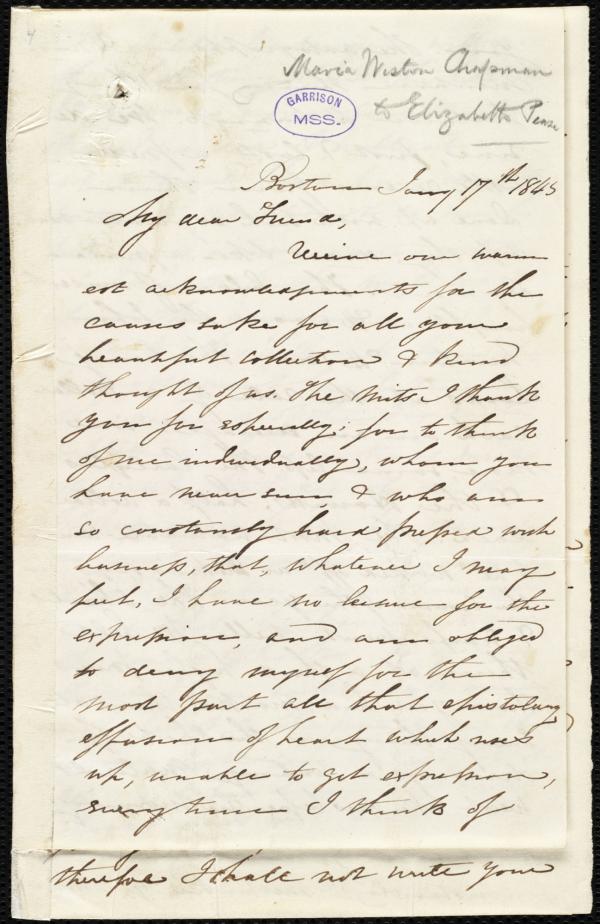 Maria Weston Chapman
to Elizabeth Pease
GARRISON
MSS.
Boston Jany 17th 1845
My dear Friend,
Receive our warm
est acknowledgments for the
causes sake for all your
beautiful collection & kind
thought of us. The mits I thank
you for especially; for to think
of me individually, whom you
have never seen & who am
so constantly hard pressed with
business, that, whatever I may
feel, I have no leisure for the
expression, and am obliged
to deny myself for the
most part all that epistolary
effusion of heart which rises
up, unable to get expression,
every time I think of
therefore I shall not write your